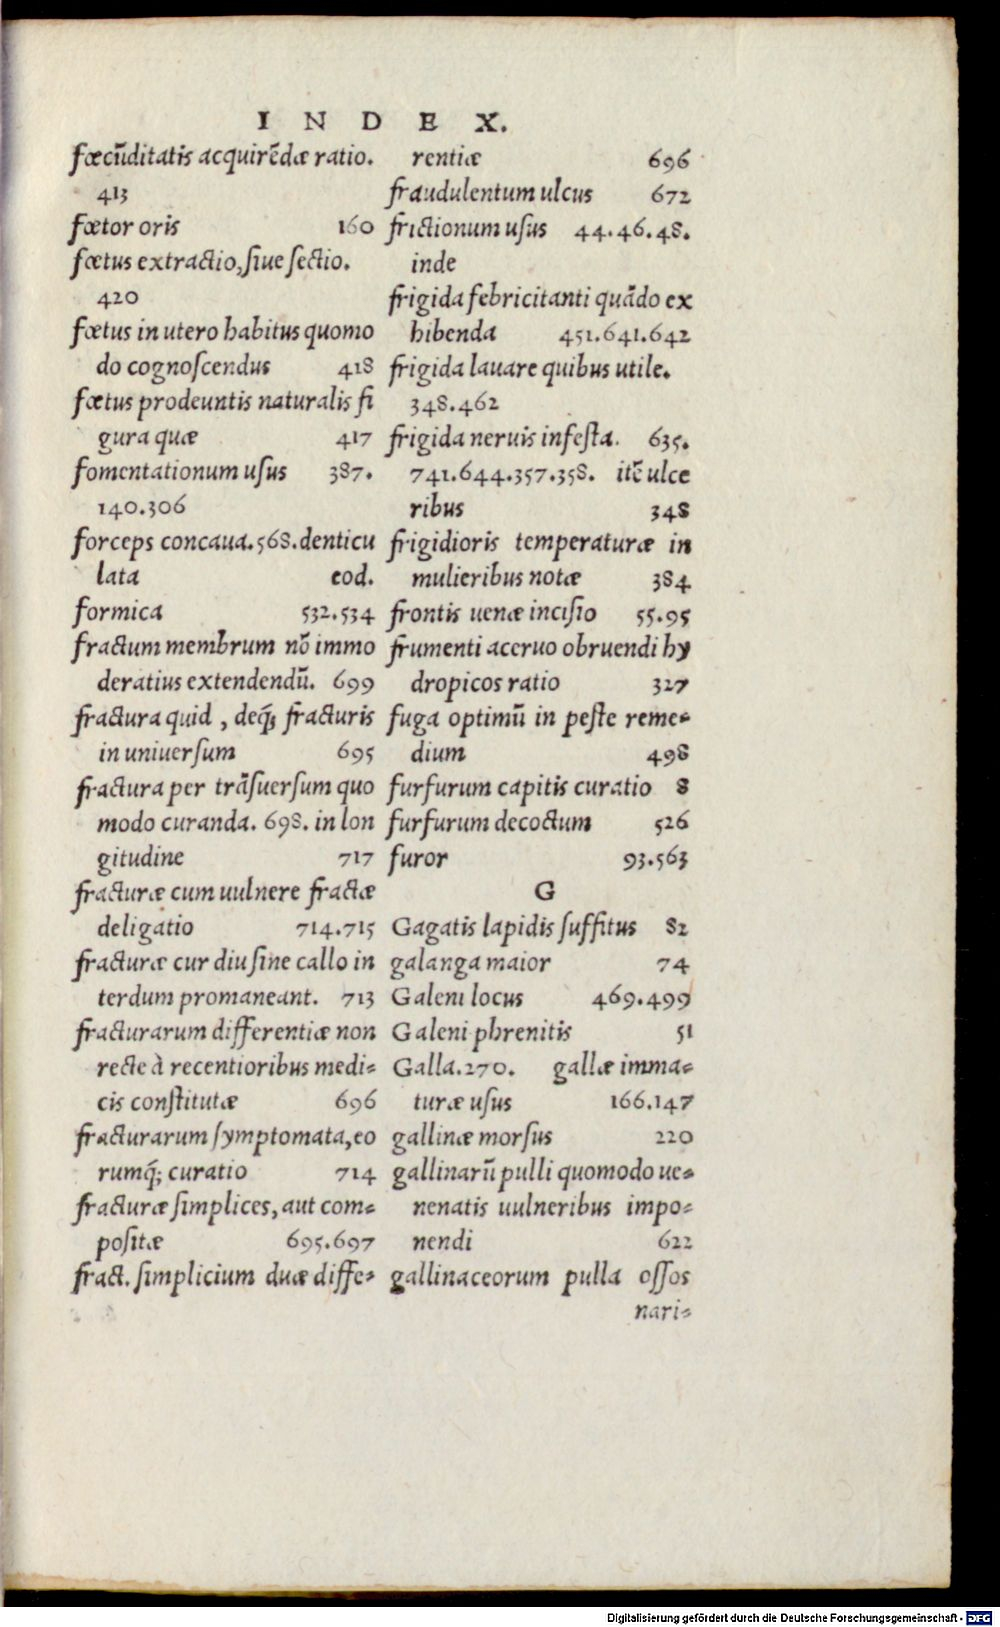 INDEX.
fœcũditatis acquirẽdæ ratio.
413
fœtor oris 160
fœtus extractio, siue sectio.
420
fœtus in utero habitus quomo
do cognoscendus 418
fœtus prodeuntis naturalis fi
gura quæ 417
fomentationum usus 387.
140.306
forceps concaua.568.denticu
lata eod.
formica 532.534
fractum membrum nõ immo
deratius extendendũ. 699
fractura quid, deq́; fracturis
in uniuersum 695
fractura per trãsuersum quo
modo curanda. 698. in lon
gitudine 717
fracturæ cum uulnere fractæ
deligatio 714.715
fracturæ cur diu sine callo in
terdum promaneant. 713
fracturarum differentiæ non
recte à recentioribus medi-
cis constitutæ 696
fracturarum symptomata, eo
rumq́; curatio 714
fracturæ simplices, aut com-
positæ 695.697
fract. simplicium duæ diffe-
rentiæ 696
fraudulentum ulcus 672
frictionum usus 44.46.48.
inde
frigida febricitanti quãdo ex
hibenda 451.641.642
frigida lauare quibus utile.
348.462
frigida neruis infesta. 635.
741.644.357.358. itẽ ulce
ribus 348
frigidioris temperaturæ in
mulieribus notæ 384
frontis uenæ incisio 55.95
frumenti aceruo obruendi hy
dropicos ratio 327
fuga optimũ in peste reme-
dium 498
furfurum capitis curatio 8
furfurum decoctum 526
furor 93.563
G
Gagatis lapidis suffitus 82
galanga maior 74
Galeni locus 469.499
Galeni phrenitis 51
Galla.270. gallæ imma-
turæ usus 166.147
gallinæ morsus 220
gallinarũ pulli quomodo ue-
nenatis uulneribus impo-
nendi 622
gallinaceorum pulla ossos
nari-
Digitalisierung gefördert durch die Deutsche Forschungsgemeinschaft - DFG